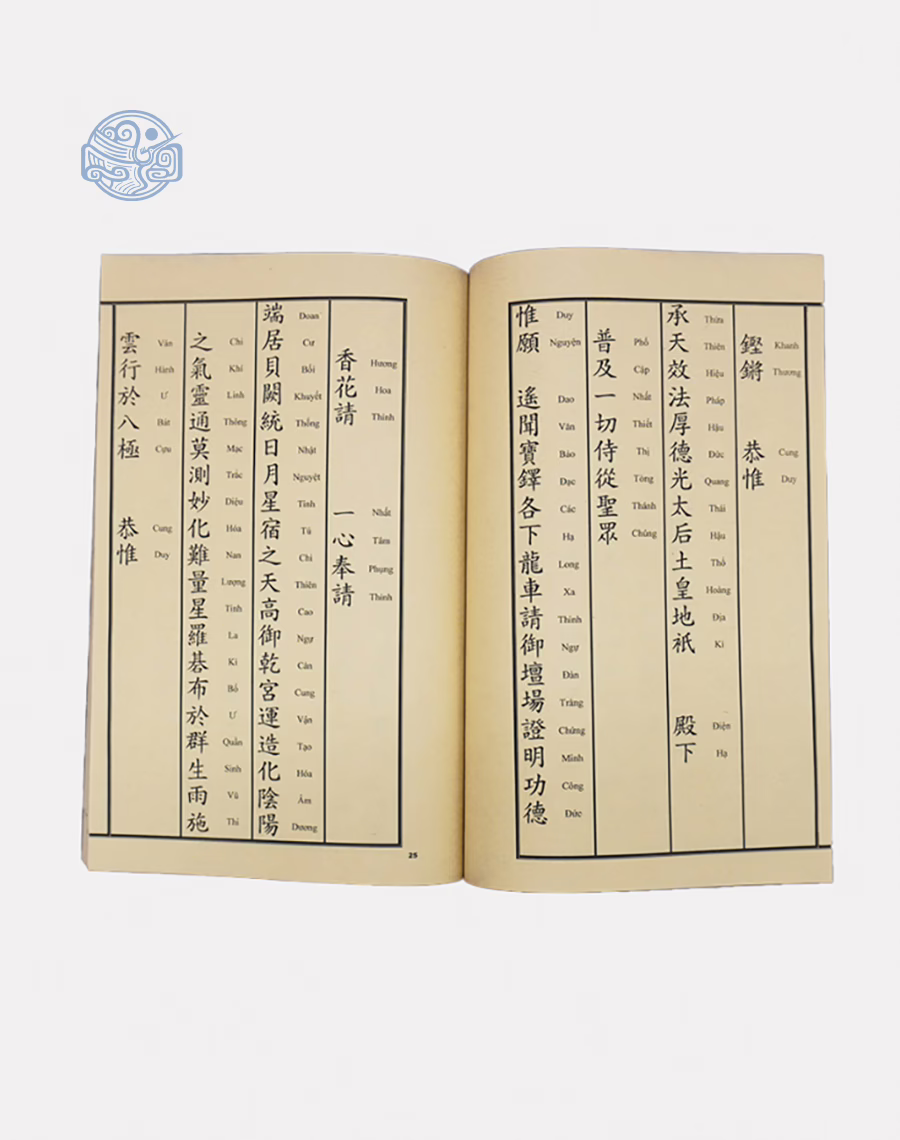 鏗鏘 恭惟
Khanh Thương Cung Duy
承天效法厚德光太后土皇地祇 殿下
Thừa Thiên Hiệu Pháp Hậu Đức Quang Thái Hậu Thổ Hoàng Địa Kì Điện Hạ
普及一切侍從聖眾
Phổ Cập Nhất Thiết Thị Tòng Thánh Chúng
惟願 遙聞寶鐸各下龍車請御壇場證明功德
Duy Nguyện Dao Văn Bảo Đạc Các Hạ Long Xa Thỉnh Ngự Đàn Tràng Chứng Minh Công Đức
香花請 一心奉請
Hương Hoa Thỉnh Nhất Tâm Phụng Thỉnh
端居貝闕統日月星宿之天高御乾宮運造化陰陽
Đoan Cư Bối Khuyết Thống Nhật Nguyệt Tinh Tú Chi Thiên Cao Ngự Càn Cung Vận Tạo Hóa Âm Dương
之氣靈通莫測妙化難量星羅碁布於群生雨施
Chi Khí Linh Thông Mạc Trắc Diệu Hóa Nan Lượng Tinh La Kì Bố Ư Quần Sinh Vũ Thi
雲行於八極 恭惟
Vân Hành Ư Bát Cực Cung Duy
25